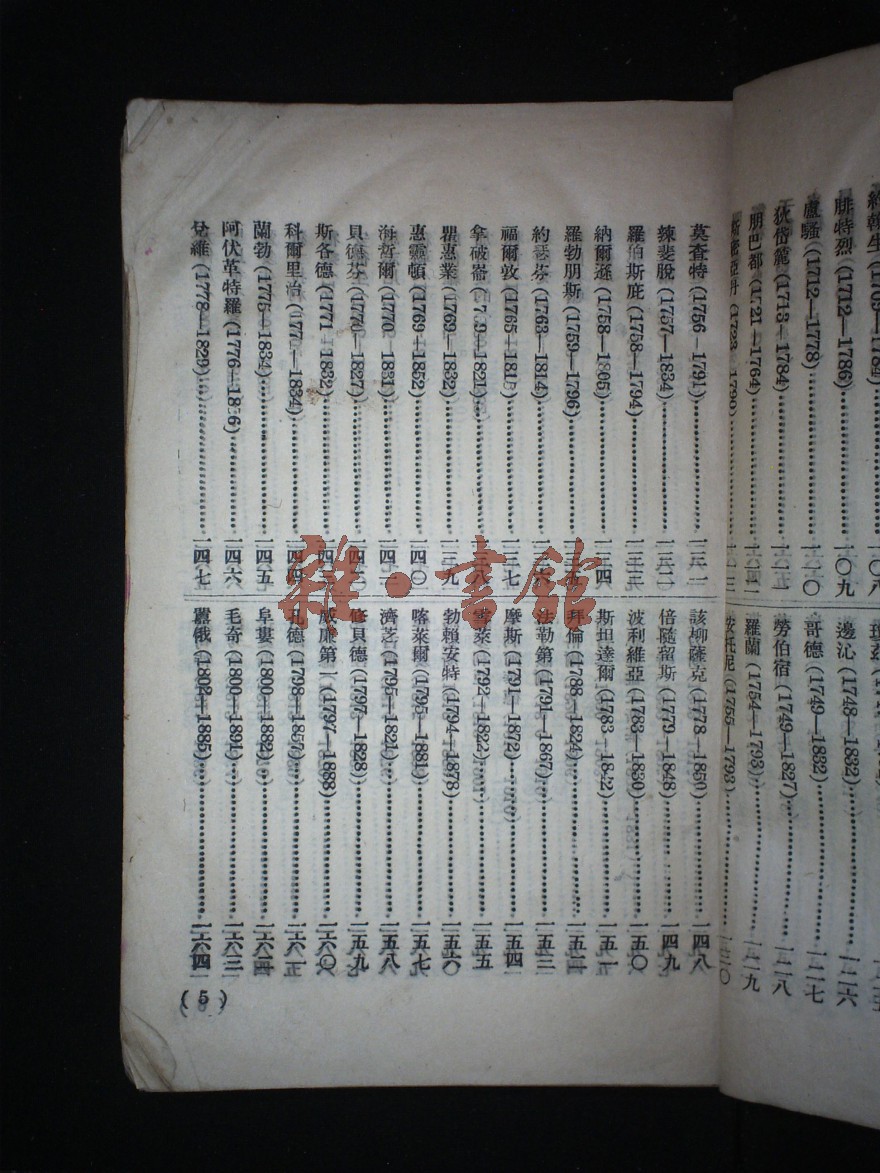 腓特烈(1712—1786)…一〇九
盧騷(1712—1778)…一一〇
狄岱龍(1713—1784)
朋巴都(1721—1764)
斯密亞丹(1723—1790)
邊沁(1748—1832)…一二六
哥德(1749—1832)…一二七
勞伯宿(1749—1827)…一二八
羅蘭(1754—1793)…一二九
(1755—1793)…一三〇
莫查特(1756—1791)…一三一
辣斐脫(1757—1834)…一三二
羅伯斯庇(1758—1794)…一三三
納爾遜(1758—1805)…一三四
羅勃朋斯(1759—1796)…一三五
約瑟芬(1763—1814)…一三六
福爾敦(1765—1815)…一三七
拿破崙(1769—1821)…一三八
瞿惠業(1769—1832)…一三九
惠靈頓(1769—1852)…一四〇
海哲爾(1770—1831)…一四一
貝德芬(1770—1827)…一四二
斯各德(1771—1832)…一四三
科爾里治(177 —1834)…一四四
蘭勃(1775—1834)…一四五
阿伏革特羅(1776—1856)…一四六
兌維(1778—1829)…一四七
該柳薩克(1778—1850)…一四八
倍隨留斯(1779—1848)…一四九
波利維亞(1783—1830)…一五〇
斯坦達爾(1783—1842)…一五一
拜倫(1788—1824)…一五二
法勒第(1791—1867)…一五三
摩斯(1791—1872)…一五四
雪萊(1792—1822)…一五五
勃賴安特(1794—1878)…一五六
喀萊爾(1795—1881)…一五七
濟芝(1795—1821)…一五八
修貝德(1797—1828)…一五九
威廉第一(1797—1888)…一六〇
孔德(1798—1857)…一六一
阜婁(1800—1882)…一六二
毛奇(1800—1891)…一六三
囂俄(1802—1885)…一六四
(5)
雜·書館